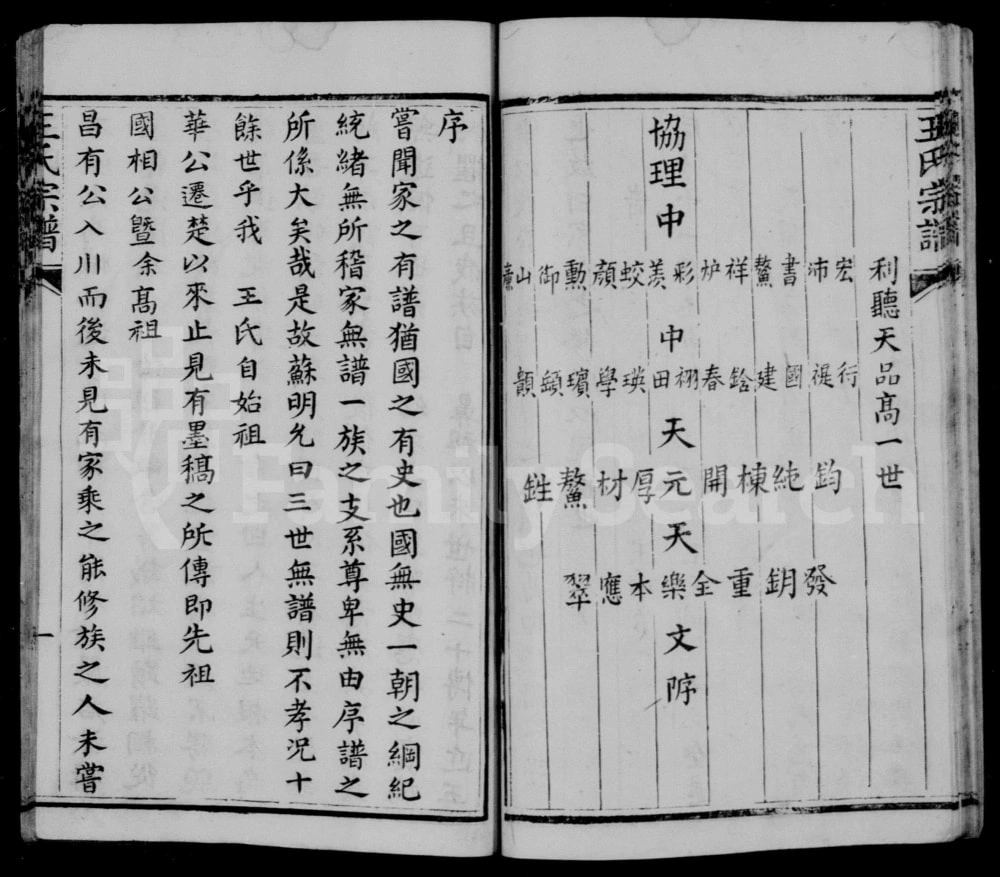 王氏宗譜
利聽天品高一世
宏沛書鰲祥炉彩羨蛟顏勲御山
行禔國建鎗春祤田瑛學璸䪴顫
鈞純棟開元厚材鰲鉎
發鈅重全樂本應翠
協理中 中天 天文
序
嘗聞家之有譜猶國之有史也國無史一朝之綱紀
統緒無所稽家無譜一族之支系尊卑無由序譜之
所係大矣哉是故蘇明允曰三世無譜則不孝况十
餘世乎我 王氏自始祖
華公遷楚以來止見有墨稿之所傳即先祖
國相公暨余高祖
昌有公入川而後未見有家乘之能修族之人未嘗
王氏宗譜
一
FamilySearch